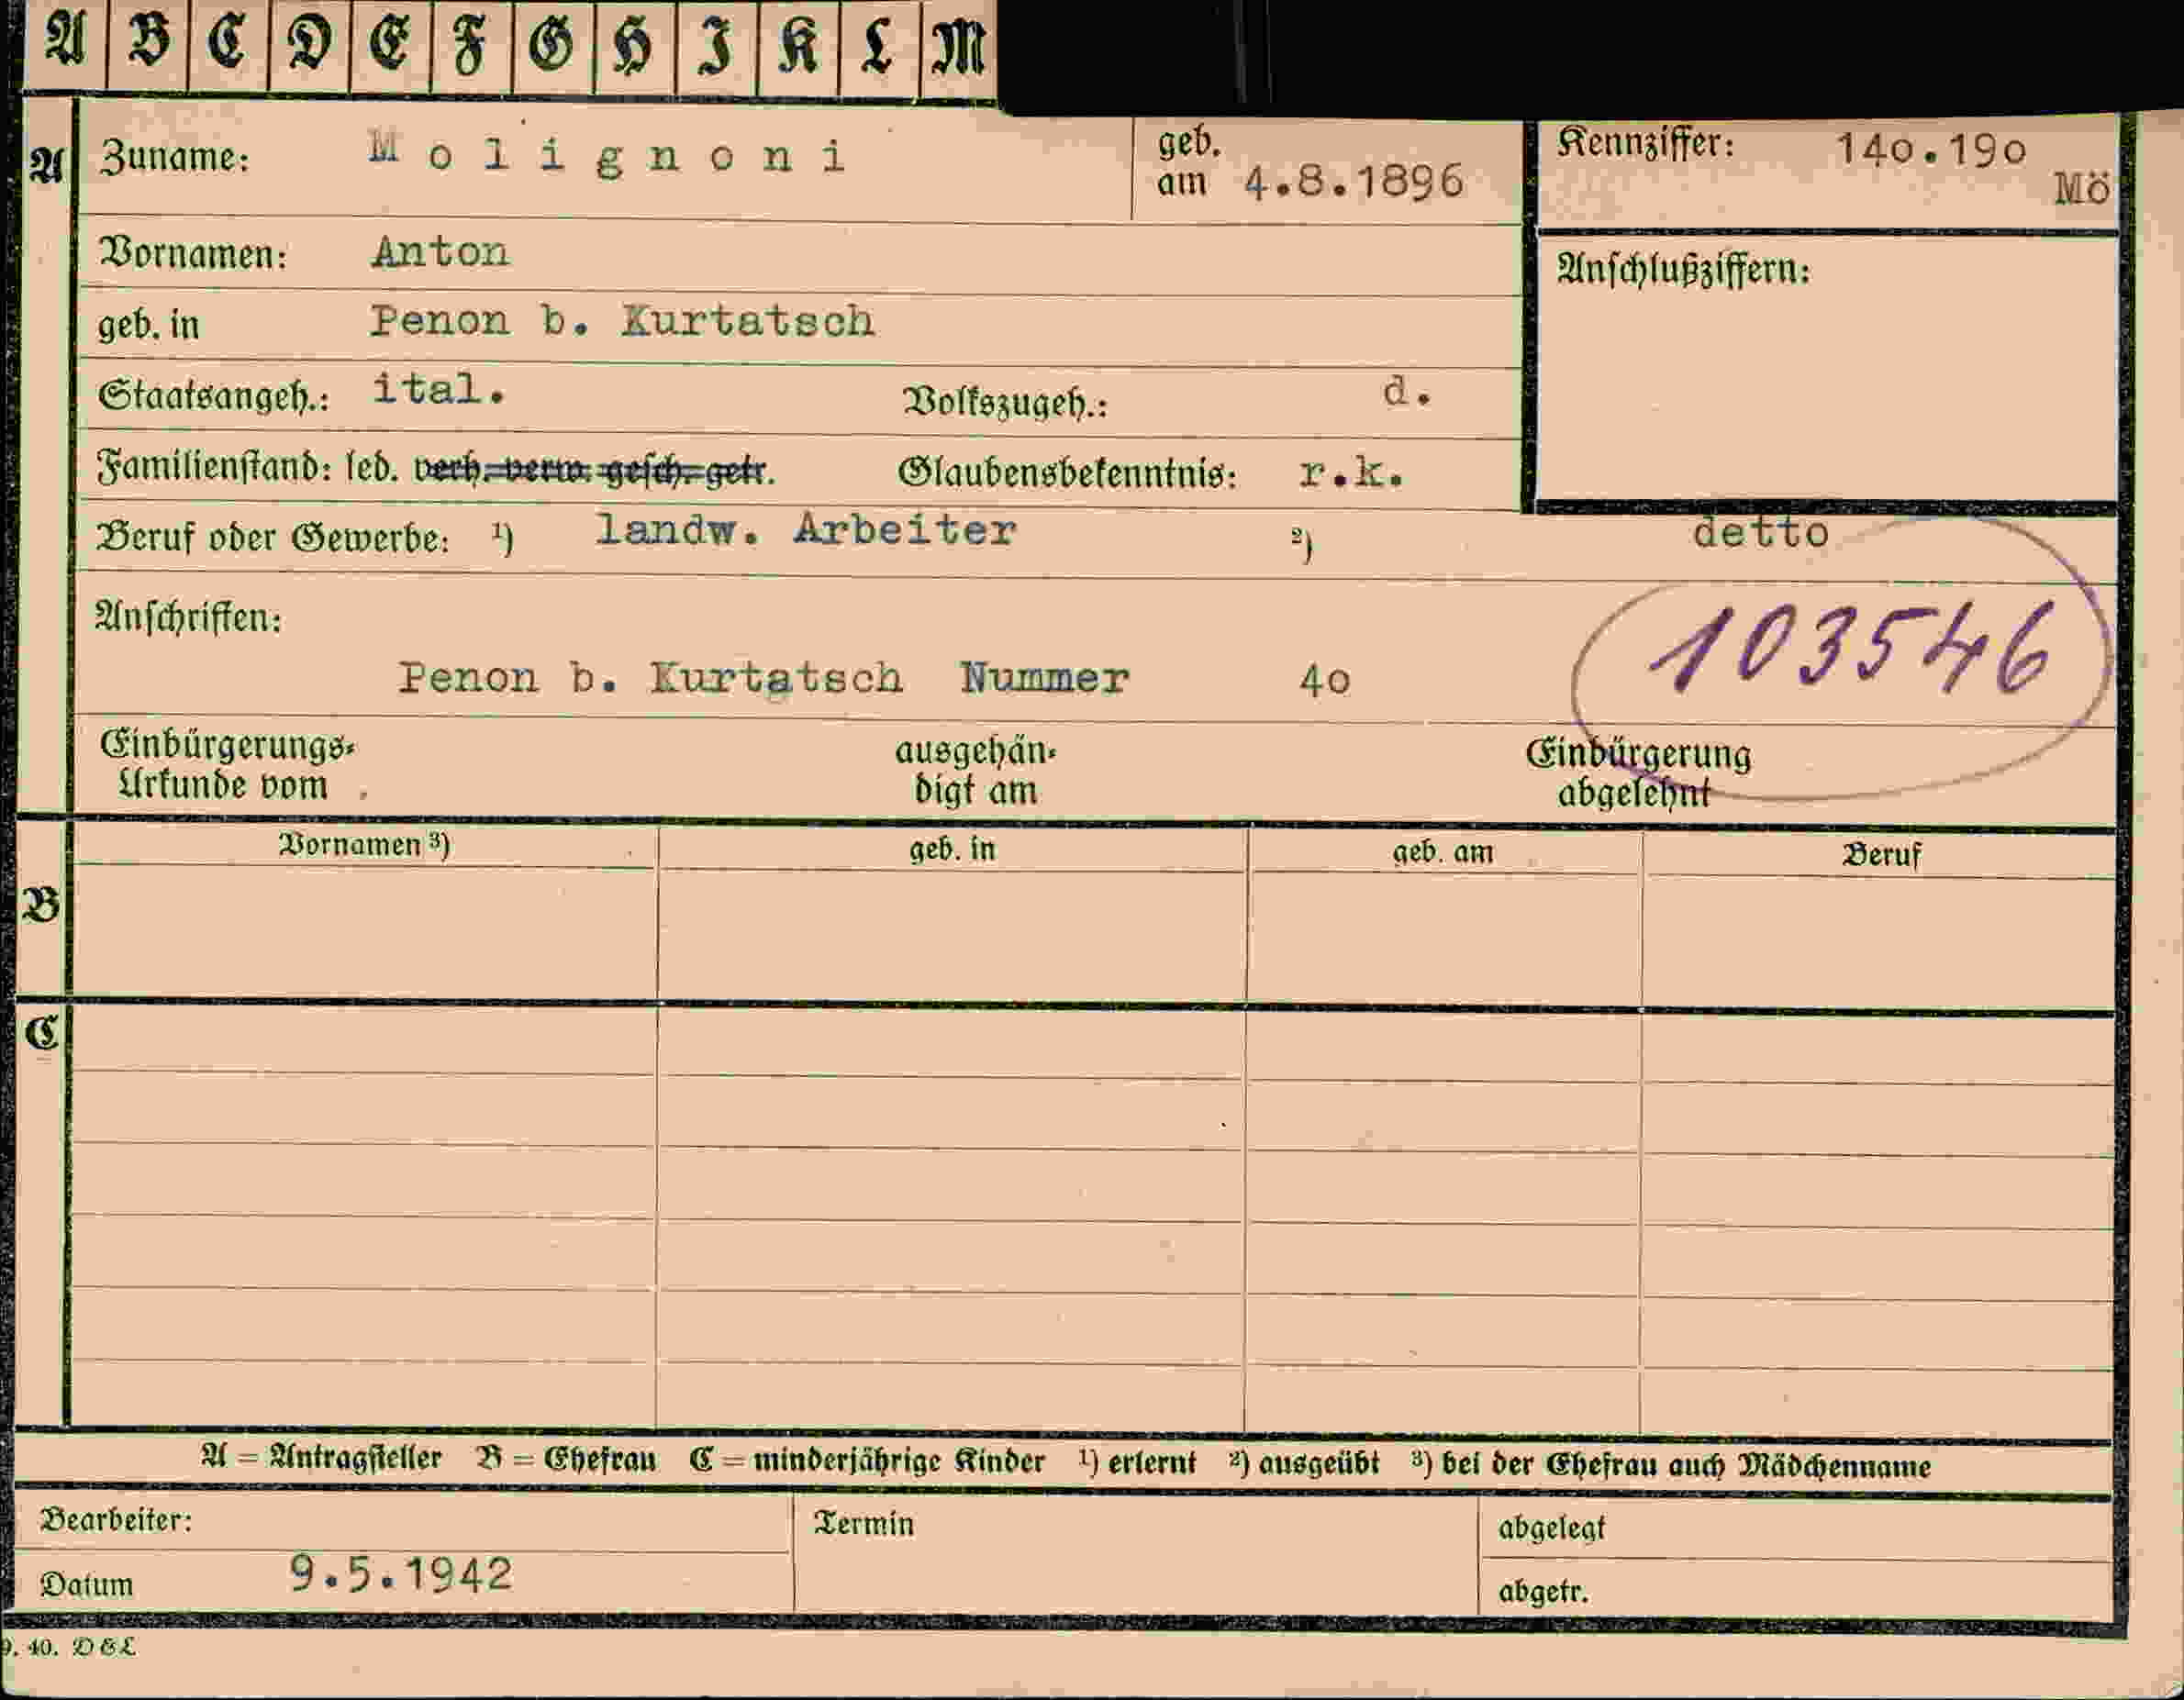 A B C D E F G H I K L M
A Zuname: Molignoni geb. am 4.8.1896 Kennziffer: 140.190 Mö
Vornamen: Anton Anschlußziffern:
geb. in Penon b. Kurtatsch
Staatsangeh.: ital. Volkszugeh.: d.
Familienstand: led. verh. verw. gesch. getr. Glaubensbekenntnis: r.k.
Beruf oder Gewerbe: 1) landw. Arbeiter 2) detto
Anschriften: 103546
Penon b. Kurtatsch Nummer 40
Einbürgerungs- ausgehän- Einbürgerung
Urkunde vom digt am abgelehnt
Vornamen 3) geb. in geb. am Beruf
B
C
A = Antragsteller B = Ehefrau C = minderjährige Kinder 1) erlernt 2) ausgeübt 3) bei der Ehefrau auch Mädchenname
Bearbeiter: Termin abgelegt
Datum 9.5.1942 abgetr.
9. 40. DGL